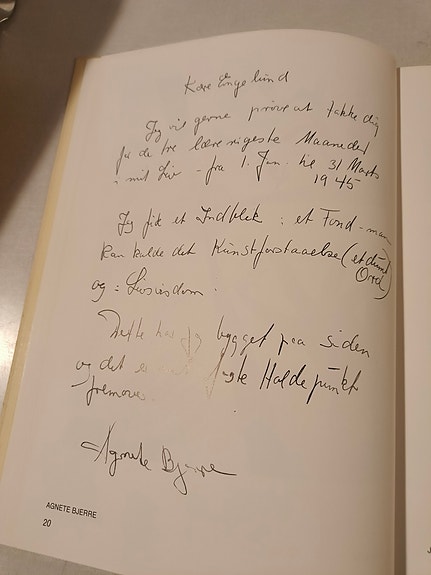 Kære Engelund
Jeg vil gerne prøve at takke dig
for de tre lærerigeste Maaneder
i mit Liv - fra 1. Jan. til 31 Marts
1945
Jeg fik et Indblik i et Fond - man
kan kalde det Kunstforstaaelse (et dumt
Ord)
og i Livsvisdom.
Dette har jeg bygget paa siden
og det er faste Holdepunkt
fremover.
Agnete Bjerre
AGNETE BJERRE
20